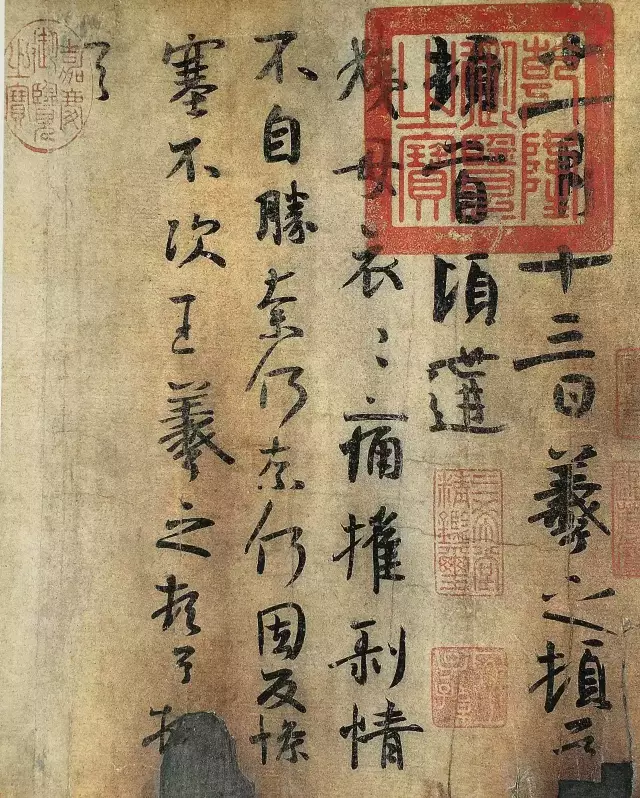 十一月十三日羲之頓首
頓首頃遘
姨母哀哀痛摧剝情
不自勝奈何奈何因反慘
塞不次王羲之頓首頓
首
乾隆御覽之寶
三希堂精鑑璽
嘉慶御覽之寶